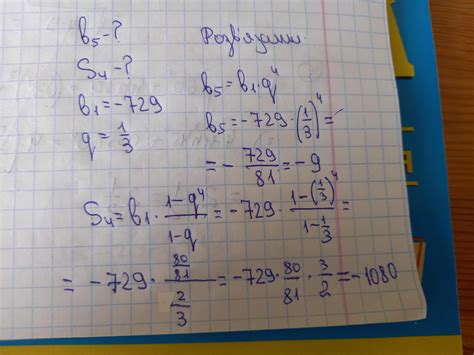 b₅-?
S₄-?
b₁=-729
q=1/3
Розв'язання.
b₅=b₁·q⁴
b₅=-729·(1/3)⁴=
=-729/81=-9
S₄=b₁·(1-q⁴)/(1-q)=-729·(1-(1/3)⁴)/(1-1/3)=
=-729·(80/81)/(2/3)=-729·80/81·3/2=-1080